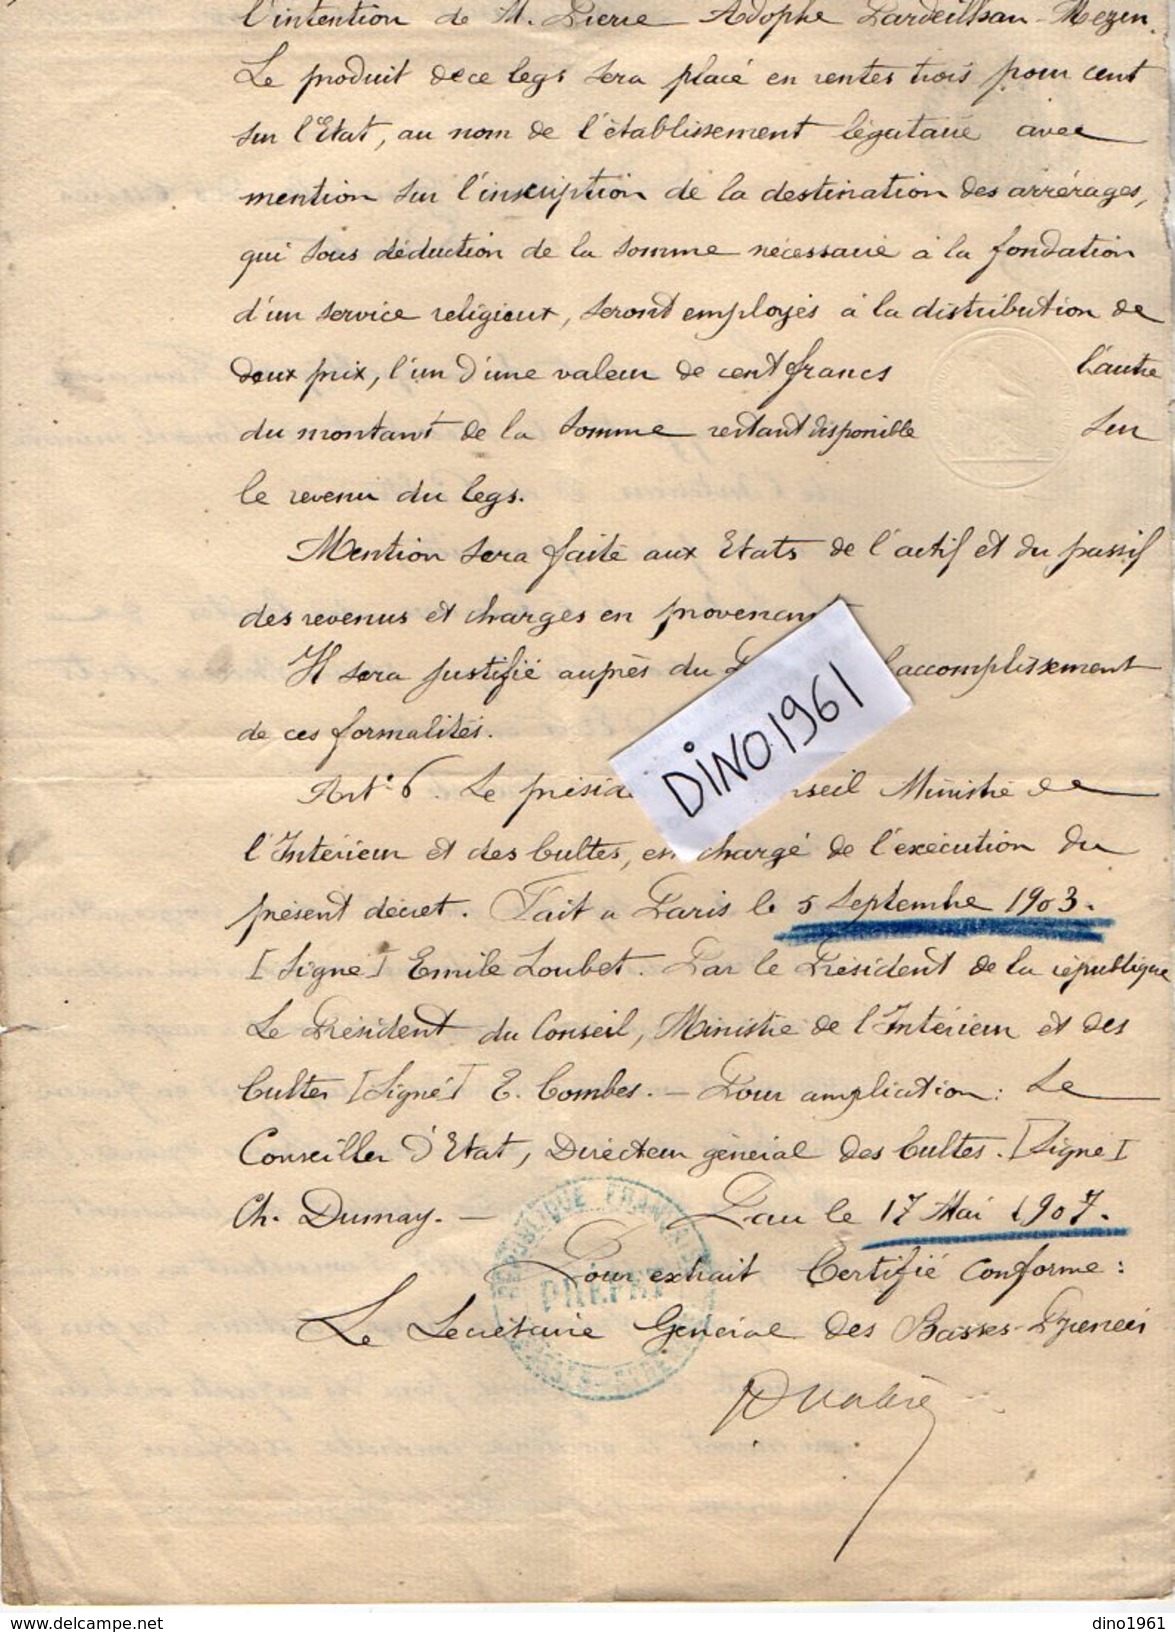 l'intention de M. Pierre Adophe Lardeilhan-Mezin.
Le produit de ce legs sera placé en rentes trois pour cent
sur l'Etat, au nom de l'établissement légataire avec
mention sur l'inscription de la destination des arrérages,
qui sous déduction de la somme nécessaire à la fondation
d'un service religieux, seront employés à la distribution de
deux prix, l'un d'une valeur de cent francs l'autre
du montant de la somme restant disponible sur
le revenu du legs.
Mention sera faite aux Etats de l'actif et du passif
des revenus et charges en provenant
Il sera justifié auprès du l'accomplissement
de ces formalités.
Art. 6. Le présid nseil Ministre de
l'Intérieur et des Cultes, est chargé de l'exécution du
présent décret. Fait à Paris le 5 Septembre 1903.
[Signé] Emile Loubet. Par le Président de la république
Le Président du Conseil, Ministre de l'Intérieur et des
Cultes [Signé] E. Combes. — Pour ampliation: Le
Conseiller d'Etat, Directeur général des Cultes. [Signé]
Ch. Dumay. — Pau le 17 Mai 1907.
Pour extrait Certifié Conforme:
Le Secrétaire Général des Basses-Pyrénées
REPUBLIQUE FRANÇAISE
DINO1961
dino1961
www.delcampe.net